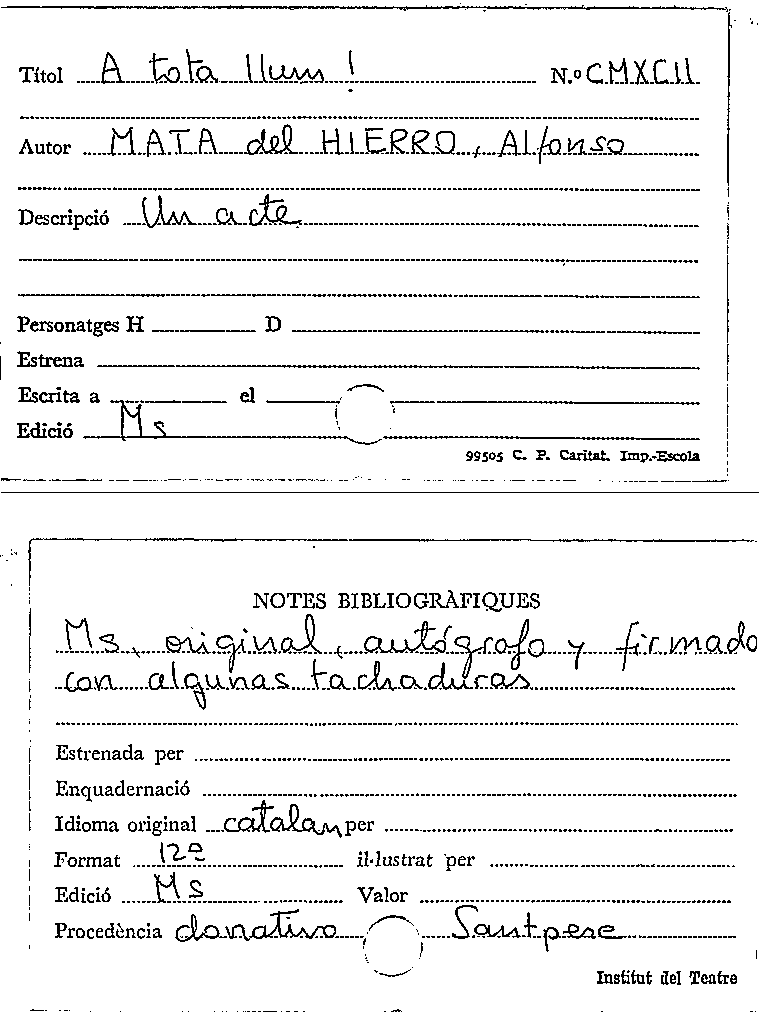 Títol A tota llum! N.º CMXCII
Autor MATA del HIERRO, Alfonso
Descripció Un acte
Personatges H D
Estrena
Escrita a el
Edició Ms
99505 C. P. Caritat. Imp.-Escola
NOTES BIBLIOGRÀFIQUES
Ms, original, autógrafo y firmado
con algunas tachaduras
Estrenada per
Enquadernació
Idioma original catalan per
Format 12º il·lustrat per
Edició Ms Valor
Procedència donativo Santpere
Institut del Teatre